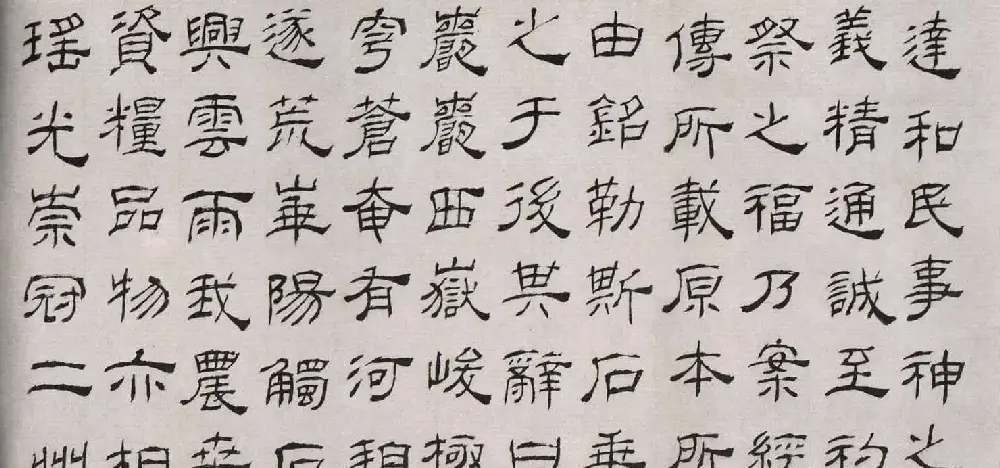 達和民事神之
義精通誠至礿
祭之福乃案經
傳所載原本所
由銘勒斯石垂
之于後其辭曰
巖巖西嶽峻極
穹蒼奄有河朔
遂荒華陽觸石
興雲雨我農桑
資糧品物亦相
瑤光崇冠二州